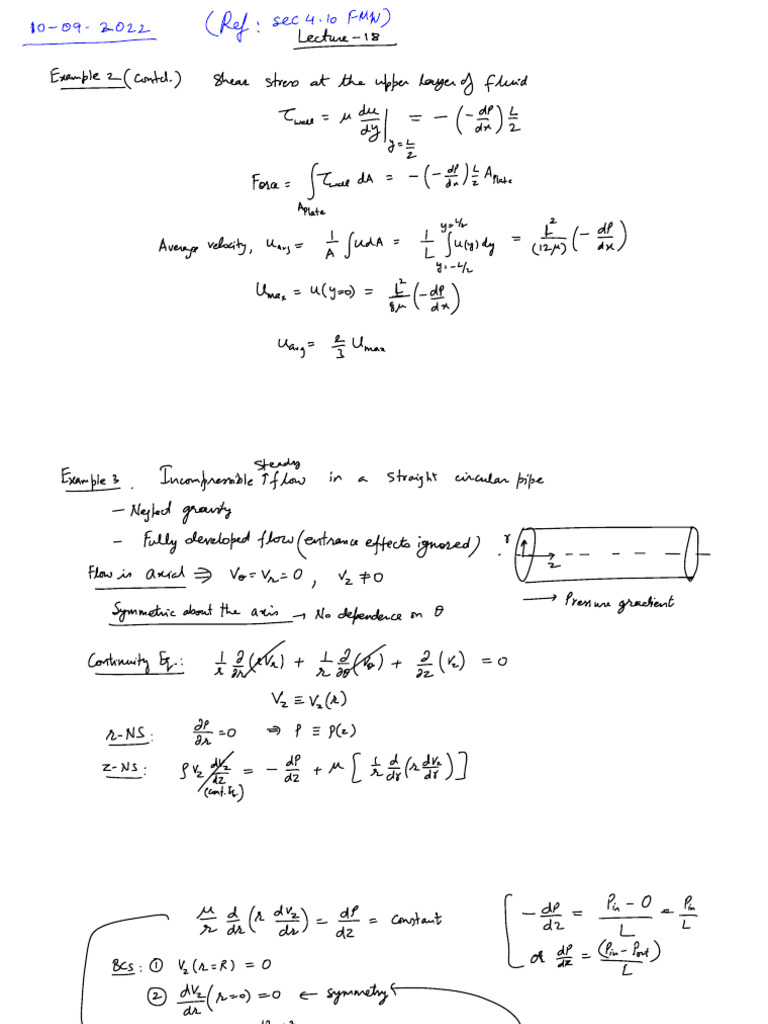 10-09-2022 (Ref: sec 4.10 FMW)
Lecture-18
Example 2 (contd.) Shear stress at the upper layer of fluid
τ_wall = μ du/dy |_{y=L/2} = -(-dP/dx) L/2
Force = ∫_{A_Plate} τ_wall dA = -(-dP/dx) L/2 A_Plate
Average velocity, u_avg = 1/A ∫ u dA = 1/L ∫_{y=-L/2}^{y=L/2} u(y) dy = L²/(12μ) (-dP/dx)
U_max = u(y=0) = L²/8μ (-dP/dx)
u_avg = 2/3 U_max
Example 3. Incompressible steady flow in a straight circular pipe
- Neglect gravity
- Fully developed flow (entrance effects ignored).
r
z
Flow is axial ⇒ V_θ = V_r = 0, V_z ≠ 0
→ Pressure gradient
Symmetric about the axis → No dependence on θ
Continuity Eq.: 1/r ∂/∂r (rV_r) + 1/r ∂/∂θ (V_θ) + ∂/∂z (V_z) = 0
V_z ≡ V_z(r)
r-NS: ∂P/∂r = 0 ⇒ P ≡ P(z)
z-NS: ρ V_z dV_z/dz = -dP/dz + μ [1/r d/dr (r dV_z/dr)]
(cont. Eq.)
μ/r d/dr (r dV_z/dr) = dP/dz = constant
-dP/dz = (P_in - 0)/L = P_in/L
or dP/dz = (P_in - P_out)/L
BCs: ① V_z(r=R) = 0
② dV_z/dr (r=0) = 0 ← symmetry